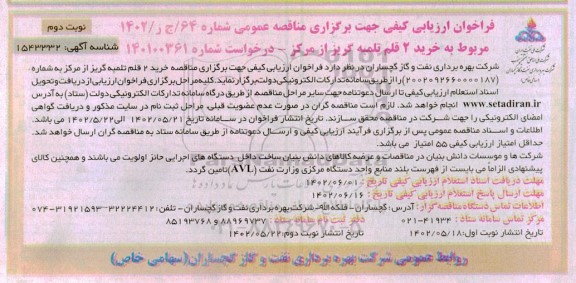 فراخوان ارزیابی کیفی جهت برگزاری مناقصه عمومی شماره ۶۴/ج ز/۱۴۰۲
نوبت دوم
مربوط به خرید ۲ قلم تلمبه گریز از مرکز - درخواست شماره ۱۴۰۱۰۰۳۶۱
شناسه آگهی: ۱۵۴۳۳۳۲
شرکت بهره برداری نفت و گاز گچساران در نظر دارد فراخوان ارزیابی کیفی جهت برگزاری مناقصه خرید ۲ قلم تلمبه گریز از مرکز به شماره
(۲۰۰۲۰۹۲۶۶۰۰۰۰۱۸۷) را از طریق سامانه تدارکات الکترونیکی دولت برگزار نماید. کلیه مراحل برگزاری فراخوان ارزیابی از دریافت و تحویل
اسناد استعلام ارزیابی کیفی تا ارسال دعوتنامه جهت سایر مراحل مناقصه از طریق درگاه سامانه تدارکات الکترونیکی دولت (ستاد) به آدرس
www.setadiran.ir انجام خواهد شد. لازم است مناقصه گران در صورت عدم عضویت قبلی، مراحل ثبت نام در سایت مذکور و دریافت گواهی
امضای الکترونیکی را جهت شرکت در مناقصه محقق سازند. تاریخ انتشار فراخوان در سامانه تاریخ ۱۴۰۲/۰۵/۲۱ الی ۱۴۰۲/۵/۲۲ می باشد.
اطلاعات و اسناد مناقصه عمومی پس از برگزاری فرآیند ارزیابی کیفی و ارسال دعوتنامه از طریق سامانه ستاد به مناقصه گران ارسال خواهد شد.
حداقل امتیاز ارزیابی کیفی ۵۵ امتیاز می باشد.
شرکت ها و موسسات دانش بنیان در مناقصات و عرضه کالاهای دانش بنیان ساخت داخل، دستگاه های اجرایی حائز اولویت می باشند و همچنین کالای
پیشنهادی الزاماً می بایست از فهرست بلند منابع واحد دستگاه مرکزی وزارت نفت (AVL) تامین گردد.
مهلت دریافت اسناد استعلام ارزیابی کیفی تاریخ: ۱۴۰۲/۰۶/۰۱
مهلت ارسال پاسخ استعلام ارزیابی کیفی تاریخ: ۱۴۰۲/۰۶/۱۶
اطلاعات تماس دستگاه مناقصه گزار: آدرس: گچساران - فلکه الله - شرکت بهره برداری نفت و گاز گچساران - تلفن: ۳۲۲۲۴۴۱۲-۳۱۹۲۱۵۹۳-۰۷۴
مرکز تماس سامانه ستاد: ۴۱۹۳۴-۰۲۱ دفتر ثبت نام سامانه ستاد: ۸۸۹۶۹۷۳۷ و ۸۵۱۹۳۷۶۸
تاریخ انتشار نوبت اول: ۱۴۰۲/۰۵/۱۸ تاریخ انتشار نوبت دوم: ۱۴۰۲/۰۵/۲۲
روابط عمومی شرکت بهره برداری نفت و گاز گچساران (سهامی خاص)